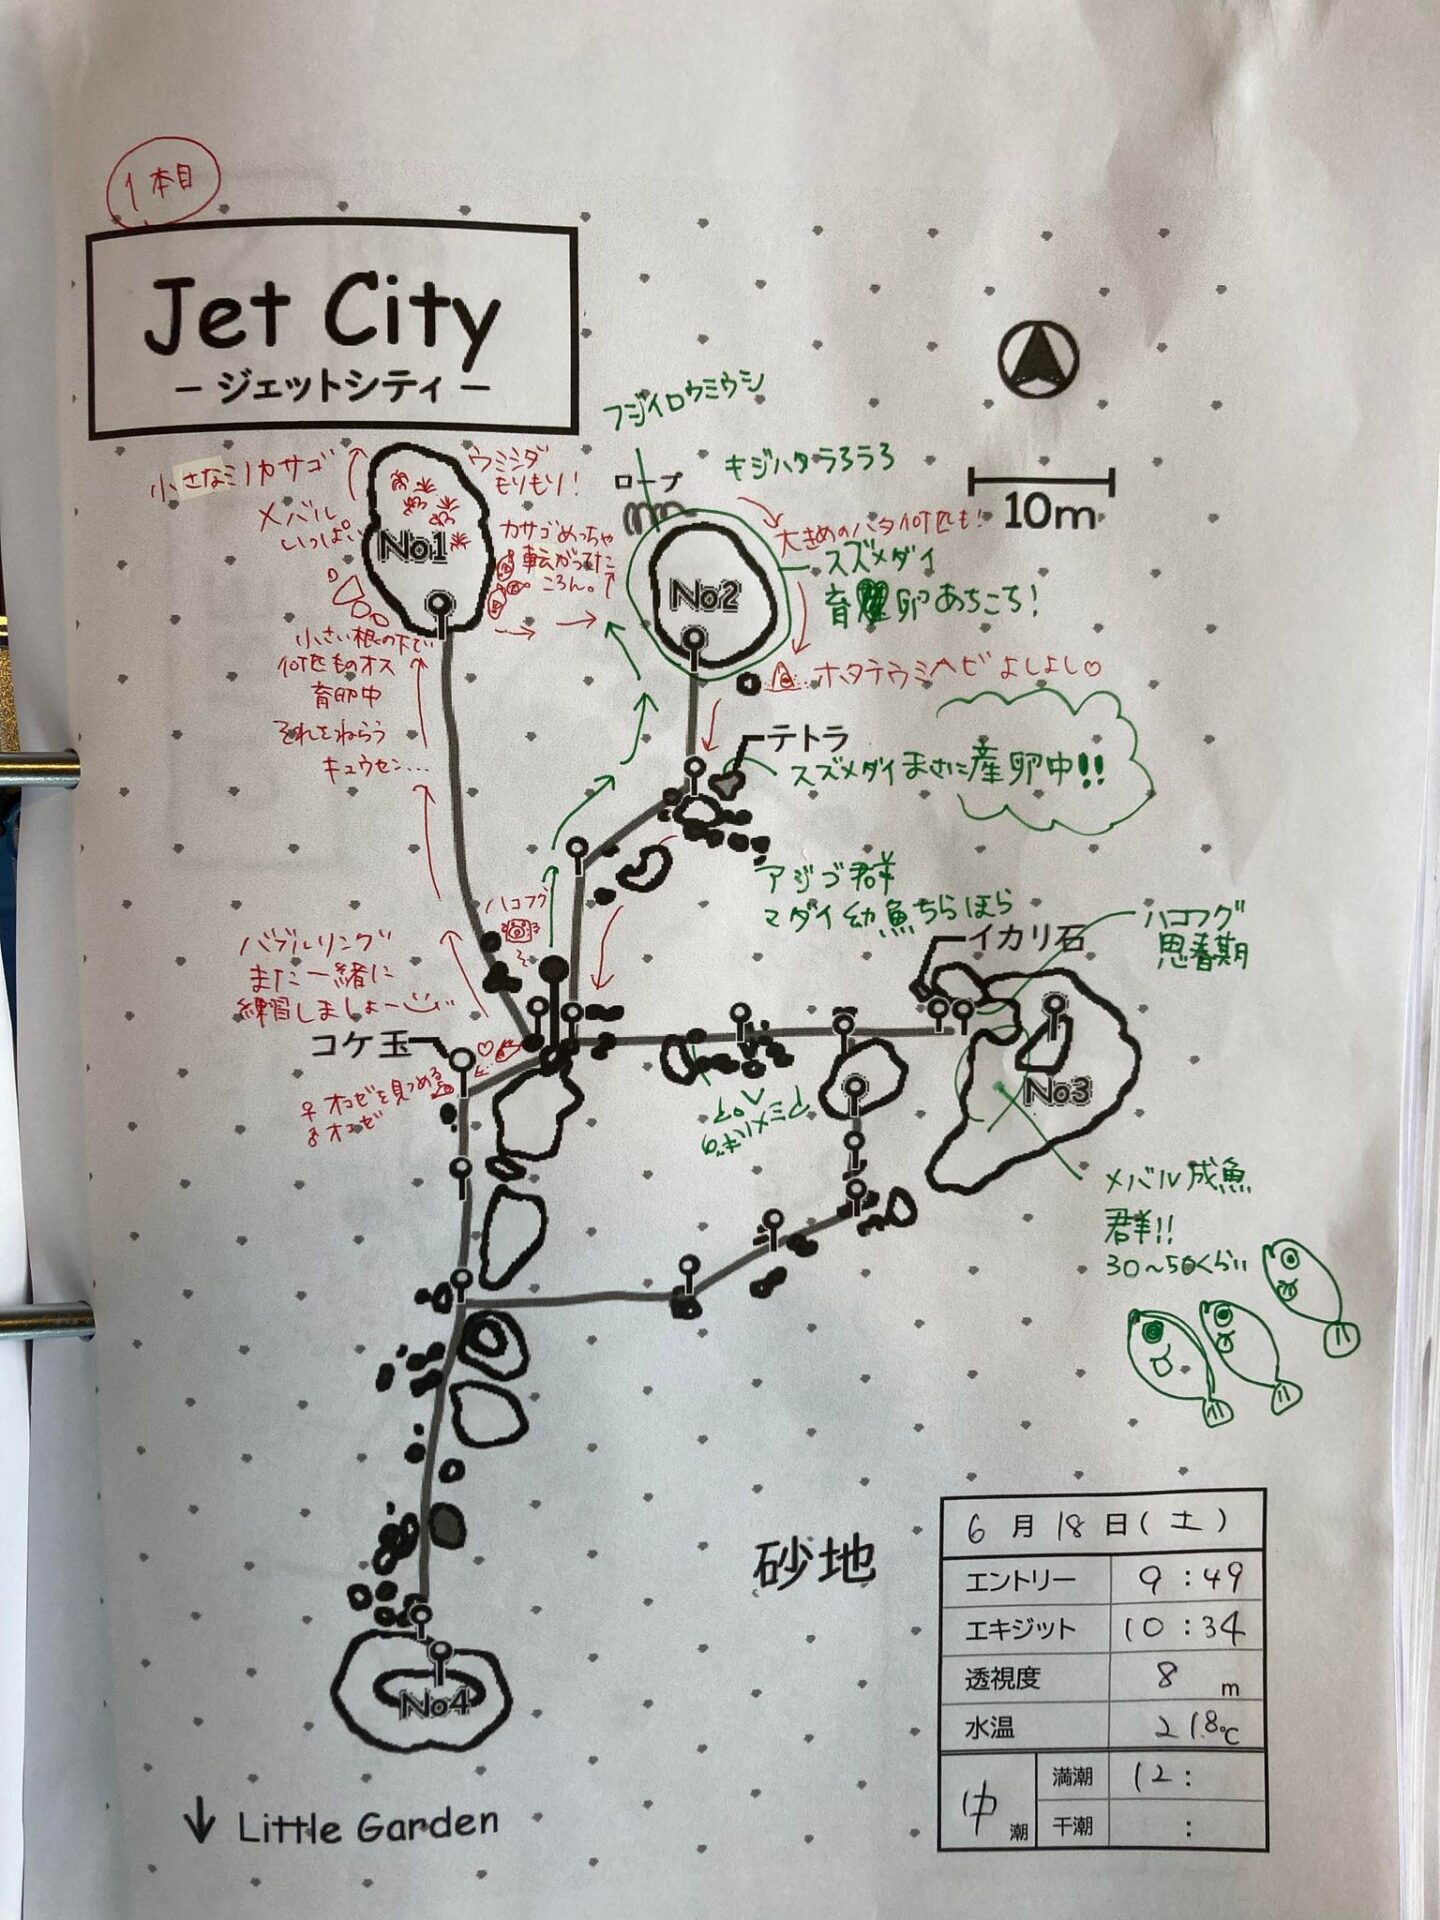 1本目
Jet City
– ジェットシティ –
フジイロウミウシ
キジハタうろうろ
ロープ
10m
小さなミノカサゴ
メバル
いっぱい
ウミシダ
もりもり!
No1
カサゴめっちゃ
転がってた
ころん。
大きめのハタ何匹も!
スズメダイ
育卵あちこち!
No2
小さい根の下で
何匹ものオス
育卵中
それをねらう
キュウセン...
ホタテウミヘビよしよし♡
テトラ
スズメダイまさに産卵中!!
アジゴ群
マダイ幼魚ちらほら
ハコフグ
バブルリング
また一緒に
練習しましょー
イカリ石
ハコフグ
思春期
コケ玉
♀オコゼを見つめる
♂オコゼ
No3
メバル成魚
群!!
30〜50くらい
砂地
6月18日(土)
エントリー 9:49
エキジット 10:34
透視度 8m
水温 21.8℃
中潮
満潮 12:
干潮 :
No4
↓ Little Garden